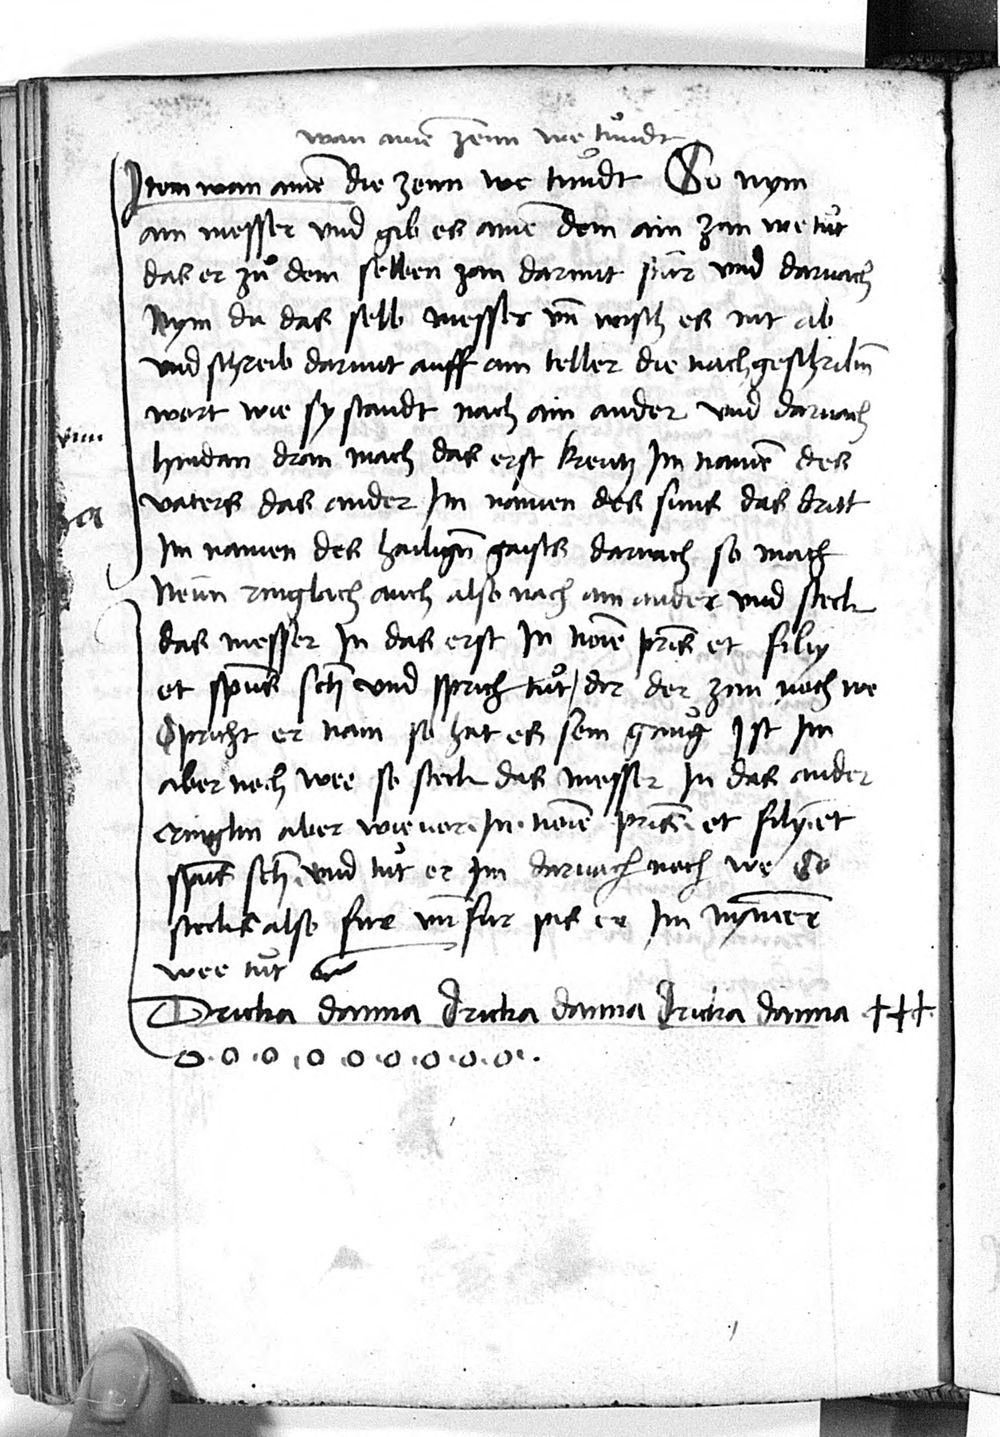 wan ainē zenn we tůndt
Item wan ainē die zenn we tundt So nym
ain messer vnd gib es ainē dem ain zan we tůt
das er zů dem selben zan darmit růr vnd darnach
Nym du das selb messer vn̄ wisch es nit ab
vnd schreib darmit auff ain teller die nachgeschribn̄
wort wie sy standt nach ain ander vnd darnach
hindan dran mach das erst kreutz Im namē des
vaters das ander Im namen des suns das dritt
Im namen des hailign̄ gaists darnach so mach
Neün ringlach auch also nach ain ander vnd steck
das messer In das erst In noīe pris et filij
et spūs sctī vnd sprich tůt dir der zan noch we
Spricht er nain so hat es sein gang Ist Im
aber noch wee so steck das messer In das ander
ringlin aber wie vor. In noīe pris. et filij. et
spūs sctī. vnd tůt er Im darnach noch we So
stecks also fur vn̄ fur pis er Im nym̄er
wee tůt
Dricka danna Dricka danna Dricka danna +++
o. o .o .o o .o .o .o .o.